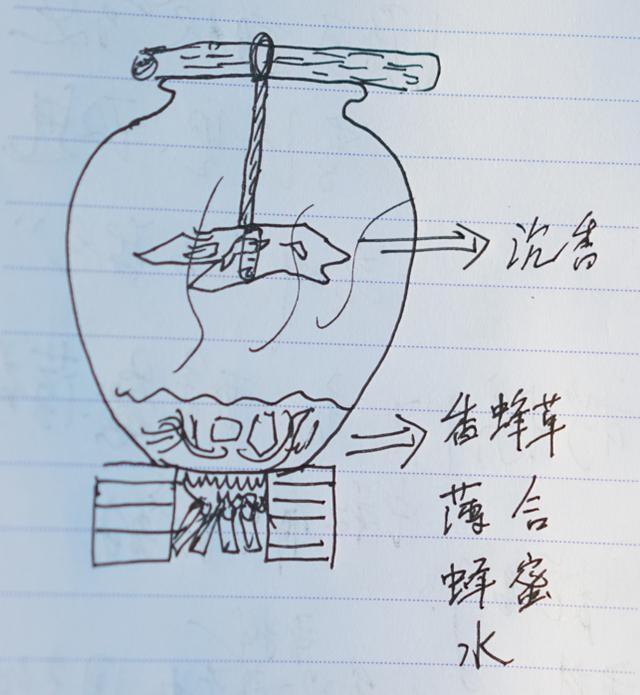 沉香
香蜂草
薄合
蜂蜜
水